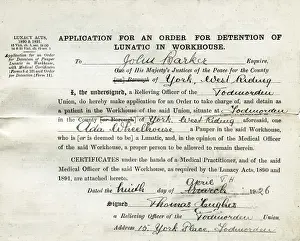 LUNACY ACTS,
1890 & 1891.
Application for an
Order for Detention of
Lunatic in Workhouse,
with Medical Certificate
APPLICATION FOR AN ORDER FOR DETENTION OF
LUNATIC IN WORKHOUSE.
To John Barker Esquire,
One of His Majesty's Justices of the Peace for the County
[or Borough] of York, West Riding
I, the undersigned, a Relieving Officer of the Todmorden
Union, do hereby make application for an Order to take charge of, and detain as
a patient in the Workhouse of the said Union, situate at Todmorden
in the County [or Borough] of York West Riding aforesaid, one
Ada Wheelhouse a Pauper in the said Workhouse,
who is [or is deemed to be] a Lunatic, and is, in the opinion of the Medical Officer
of the said Workhouse, a proper person to remain therein.
CERTIFICATES under the hands of a Medical Practitioner, and of the
Medical Officer of the said Workhouse, as required by the Lunacy Acts, 1890 and
1891, are hereto annexed.
Dated the ninth day of April March 1926
Signed Thomas Hughes
a Relieving Officer of the Todmorden Union
Address 15 York Place Todmorden